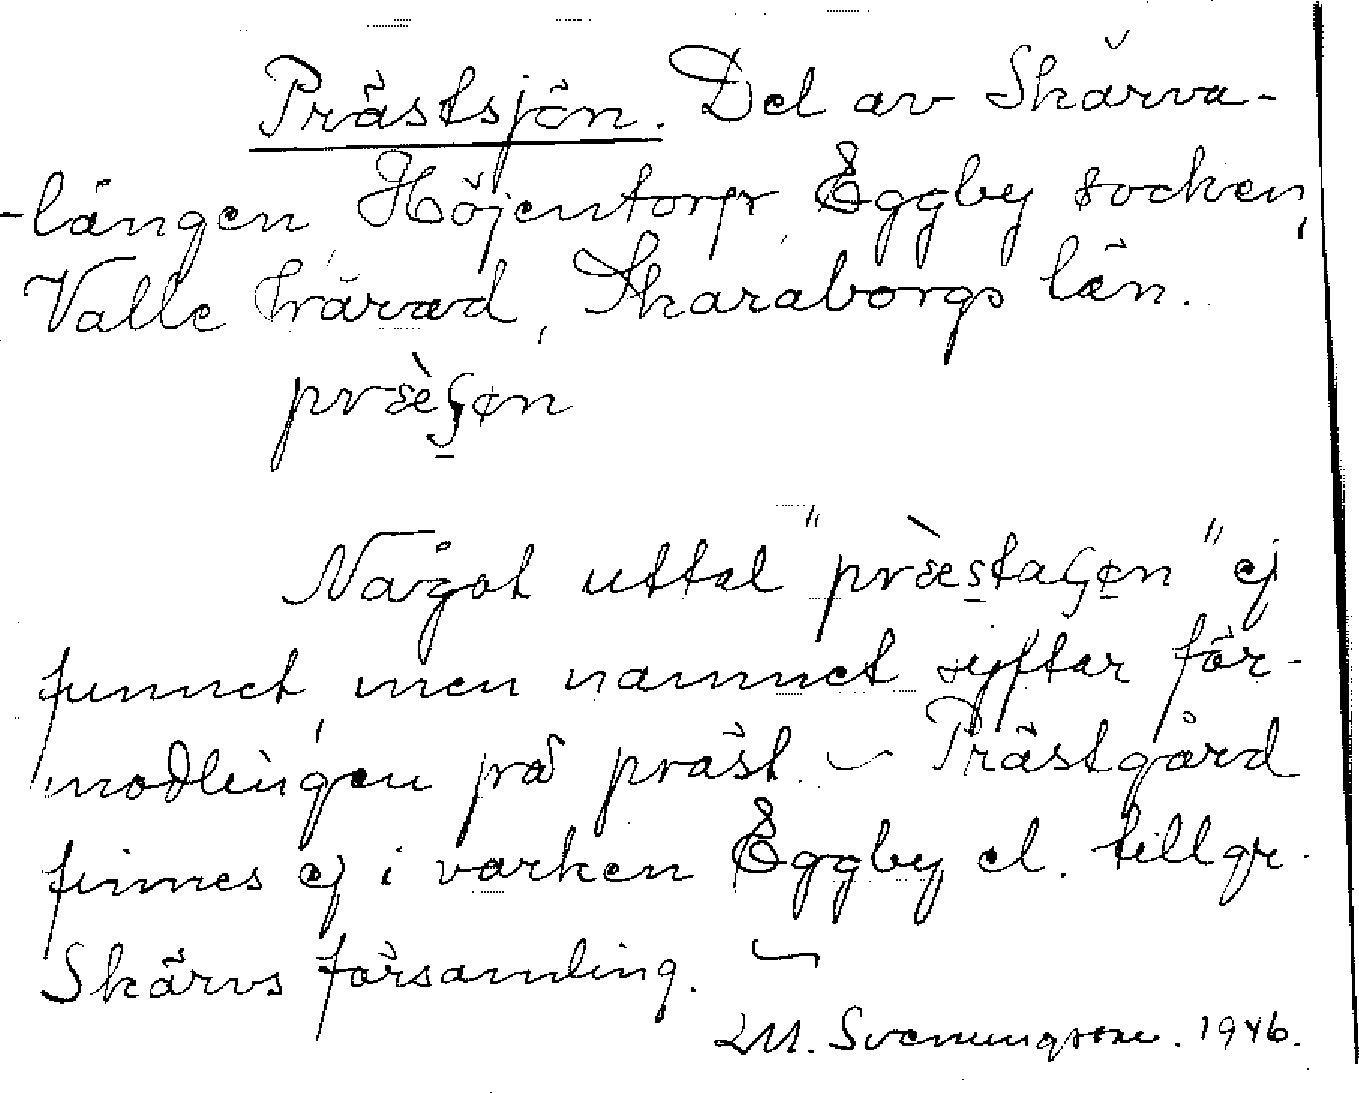 Prästsjön. Del av Skärva-
-längen, Höjentorp, Eggby socken,
Valle härad, Skaraborgs län.
præ̀ʂɷn
Något uttal "præ̀staʂɷn" ej
funnet, men namnet syftar för-
modligen på präst. – Prästgård
finnes ej i varken Eggby el. tillgr.
Skärvs församling. –
LM. Svenungsson. 1946.